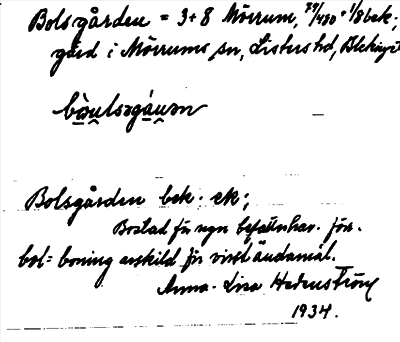 Bolsgården = 3+8 Mörrum, 79/480 + 1/8 bek.;
gård i Mörrums sn, Listers hd, Blekinge
Bolsgården bek. ek;
Bostad för ngn befattnhav. jör.
bol = boning enskild för visst ändamål.
Anna-Lisa Hedenström
1934.